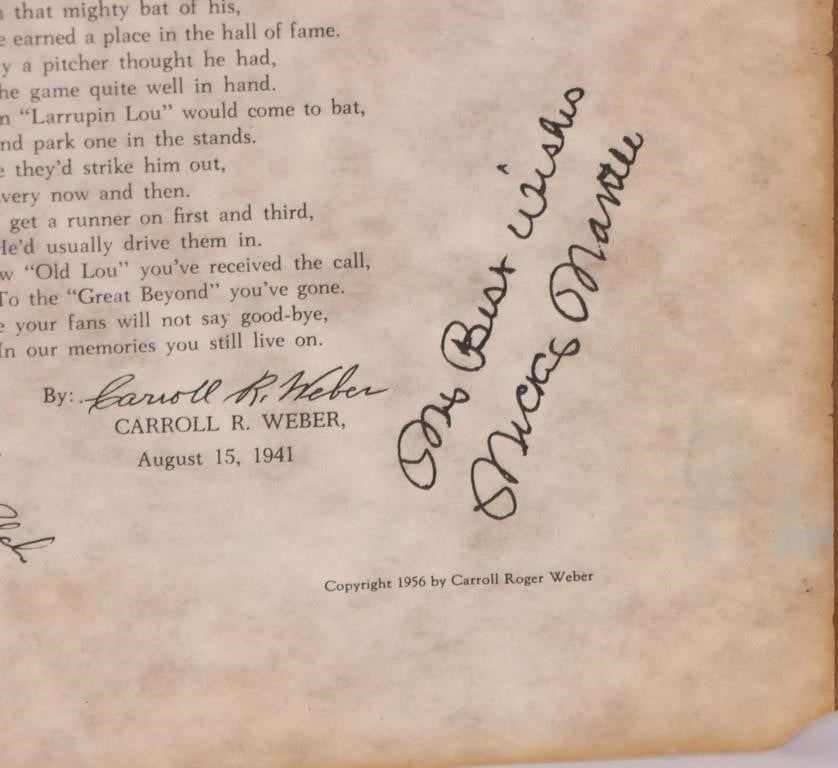 that mighty bat of his,
earned a place in the hall of fame.
a pitcher thought he had,
game quite well in hand.
“Larrupin Lou” would come to bat,
park one in the stands.
they’d strike him out,
very now and then.
get a runner on first and third,
He’d usually drive them in.
“Old Lou” you’ve received the call,
To the “Great Beyond” you’ve gone.
your fans will not say good-bye,
In our memories you still live on.
By: Carroll R. Weber
CARROLL R. WEBER,
August 15, 1941
My Best Wishes
Mickey Mantle
Copyright 1956 by Carroll Roger Weber